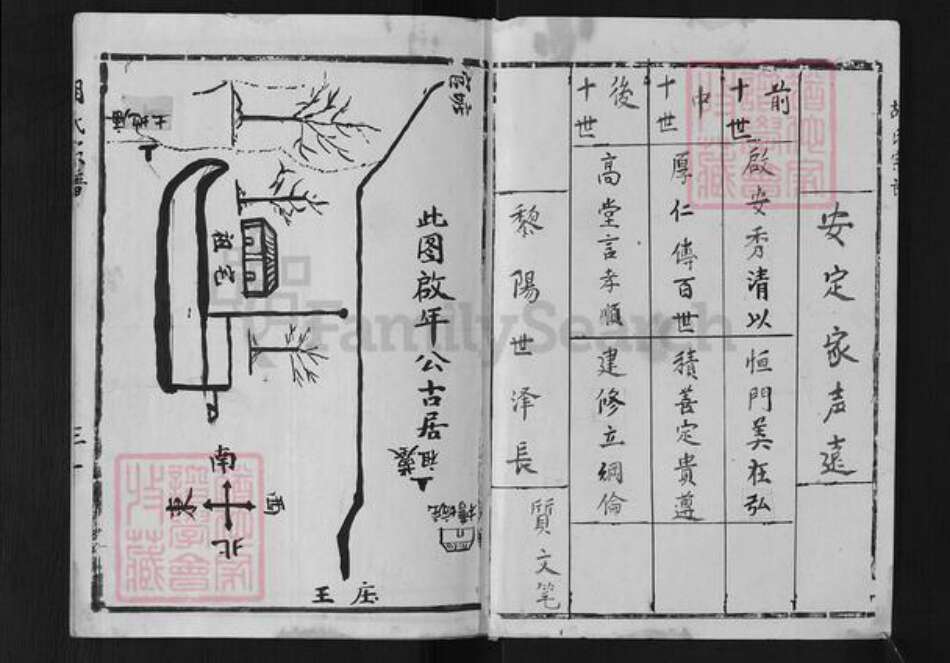 安定家声遠
前十世
啟安秀清以
恒門美在弘
中十世
厚仁傳百世
積善定貴遵
後十世
高堂言孝順
建修立綱倫
黎陽世泽長
質文笔
此图啟年公古居
祖墓
祖宅
土地庙
南
東
西
北
王庄
FamilySearch